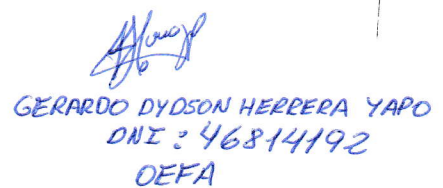 GERARDO DYDSON HERRERA YAPO
DNI: 46814192
OEFA